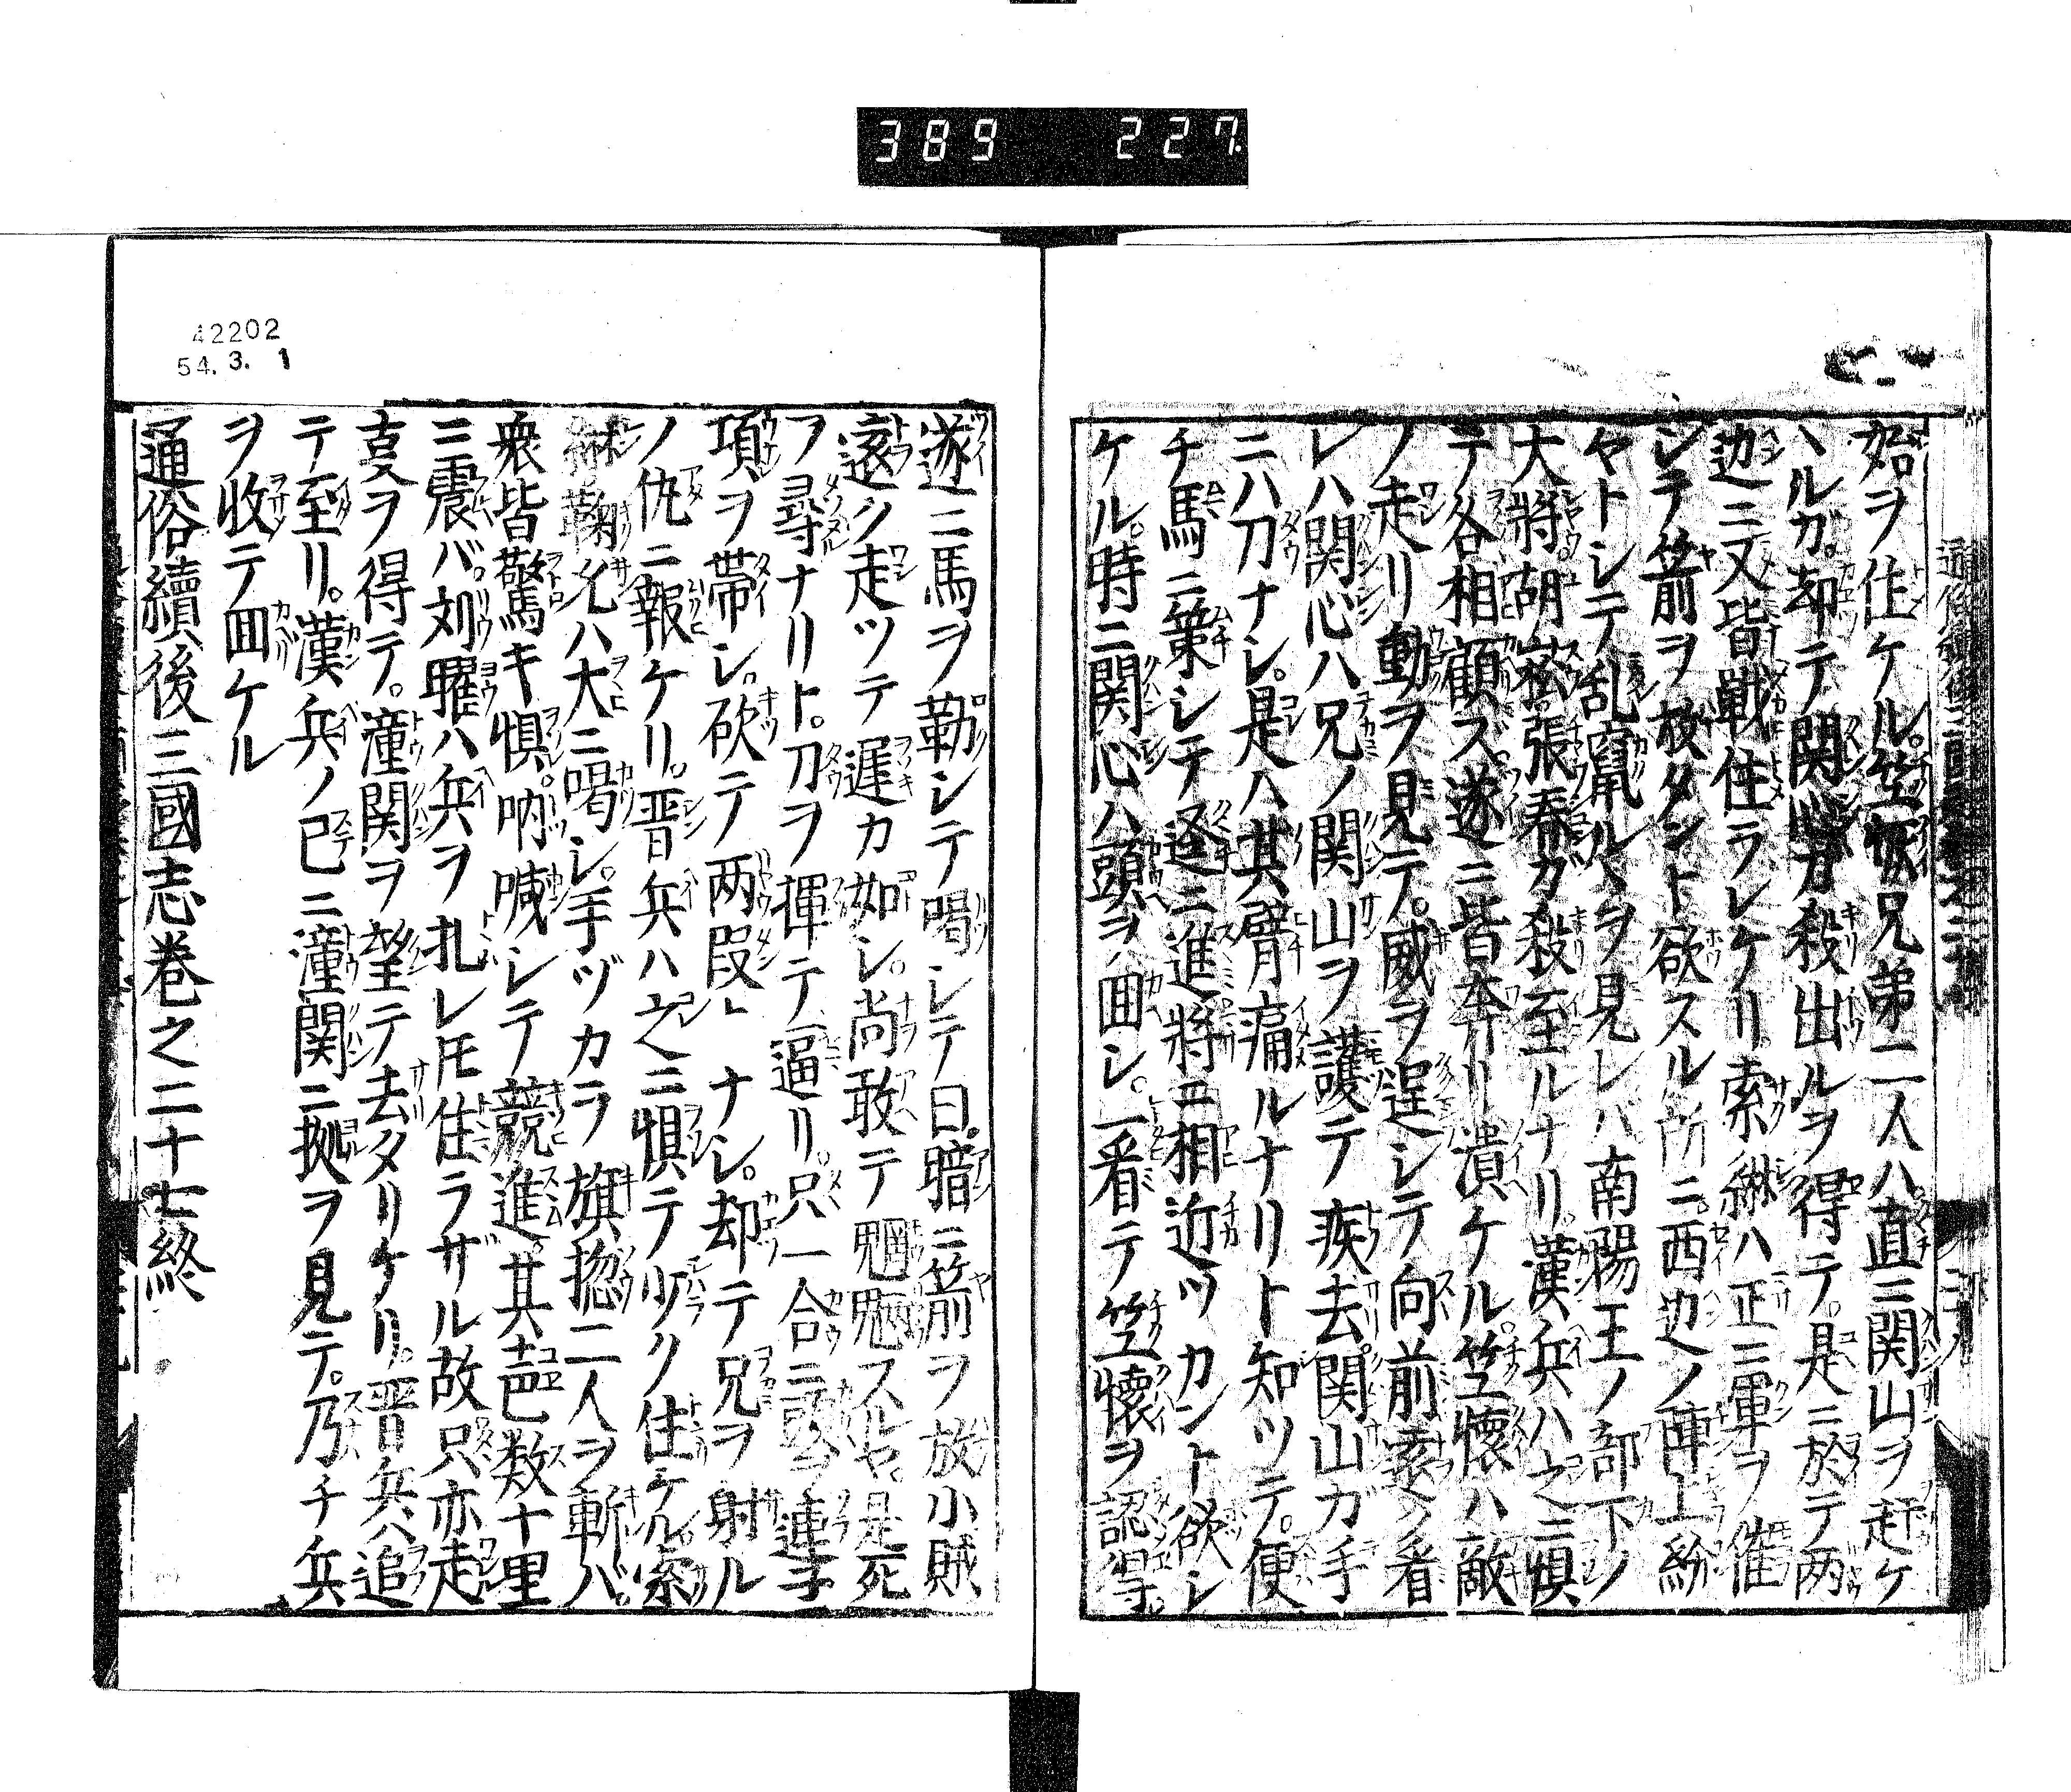 389 227
始ヲ住ケル。笠恢兄弟二人ハ。直ニ関山ヲ赶ケ
ハルガ。却テ関心ガ殺出ルヲ得テ。是ニ於テ两
边ニ又皆戦住ラレケリ索綝ハ正ニ軍ヲ催
シテ箭ヲ放タント欲スル所ニ。西边ノ陣上紛
ヤトシテ乱竄ルヽヲ見レバ南陽王ノ部下ノ
大將。胡崧。張春ガ殺至ルナリ。漢兵ハ之ニ惧
テ各相顧ズ。遂ニ皆奔リ潰ケル。笠懐ハ敵
ノ走リ動ヲ見テ。威ヲ逞シテ向前索ク看
レハ関心ハ兄ノ関山ヲ護テ疾去。関山ガ手
ニハ刀ナシ。是ハ其臂痛ルナリト知ツテ。便
チ馬ニ策シテ逕ニ進將ニ相近ツカント欲シ
ケル。時ニ関心ハ頭ヲ回シ。一看テ笠懐ヲ認得。
遂ニ馬ヲ勒シテ喝シテ曰暗ニ箭ヲ放小賊
遠ク走ツテ遲カ如シ。尚敢テ魍魎スルヤ。是死
ヲ尋ナリト。刀ヲ揮テ逼リ。只一合ニ頭ヲ連子
項ヲ帶シ。砍テ两段トナシ。却テ兄ヲ射ル
ノ仇ニ報ケリ。晋兵ハ之ニ惧テ少ク住ケル。索
綝鞠允ハ大ニ喝シ。手ヅカラ旗揔二人ヲ斬バ。
衆皆驚キ惧。吶喊シテ競進。其声数十里
ニ震バ。刘曜ハ兵ヲ扎レ𪜈住ラザル故只亦走
ヲ得テ。潼関ヲ望テ去タリケリ。晋兵ハ追
テ至リ。漢兵ノ已ニ潼関ニ拠ヲ見テ。乃チ兵
ヲ收テ回ケル
通俗續後三國志卷之二十七終
42202
54. 3. 1